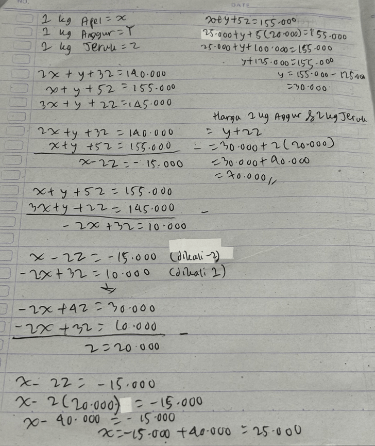 1 kg Apel = x
1 kg Anggur = Y
1 kg Jeruk = z
2x + y + 3z = 140.000
x + y + 5z = 155.000
3x + y + 2z = 145.000
2x + y + 3z = 140.000
x + y + 5z = 155.000 -
x - 2z = - 15.000
x + y + 5z = 155.000
3x + y + 2z = 145.000 -
- 2x + 3z = 10.000
x - 2z = - 15.000 (dikali -2)
- 2x + 3z = 10.000 (dikali 1)
- 2x + 4z = 30.000
- 2x + 3z = 10.000 -
z = 20.000
x - 2z = - 15.000
x - 2(20.000) = - 15.000
x - 40.000 = - 15.000
x = - 15.000 + 40.000 = 25.000
x + y + 5z = 155.000
25.000 + y + 5(20.000) = 155.000
25.000 + y + 100.000 = 155.000
y + 125.000 = 155.000
y = 155.000 - 125.000
= 30.000
Harga 1 kg Anggur & 2 kg Jeruk
= y + 2z
= 30.000 + 2(20.000)
= 30.000 + 40.000
= 70.000,,